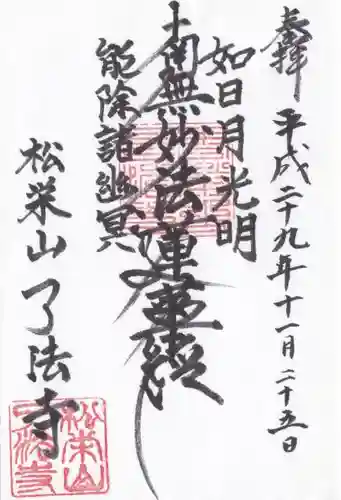 奉拝
平成二十九年十一月二十五日
如日月光明
南無妙法蓮華経
能除諸幽冥
松栄山了法寺
松栄山
了法寺